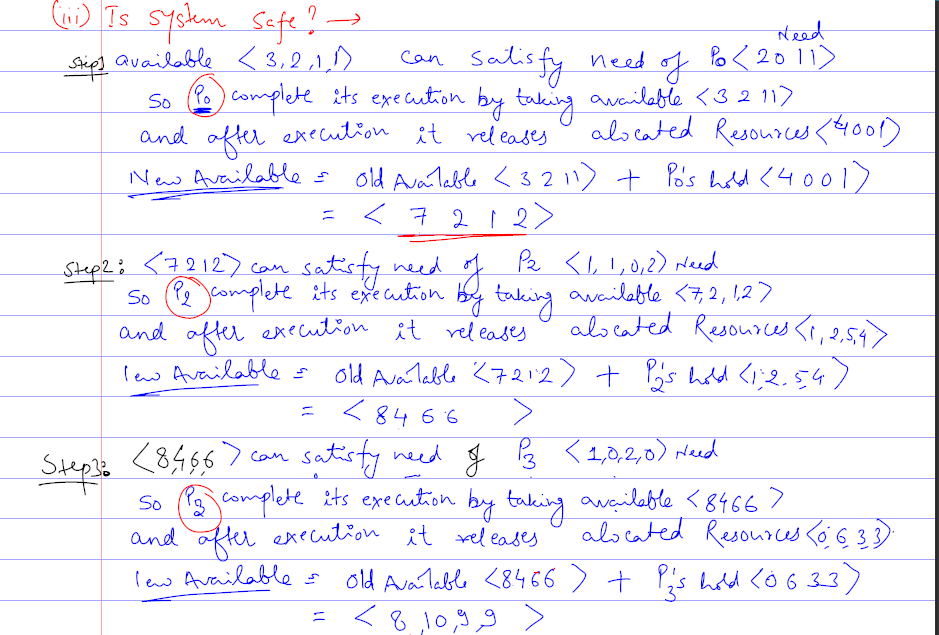 (iii) Is system safe? →
Need
Step1 available <3,2,1,1> can satisfy need of P0 <2011>
So P0 complete its execution by taking available <3 2 11>
and after execution it releases alocated Resources <4001>
New Available = old Available <3211> + P0's hold <4001>
= < 7 2 1 2>
Step2: <7212> can satisfy need of P2 <1,1,0,2> Need
So P2 complete its execution by taking available <7,2,1,2>
and after execution it releases alocated Resources <1,2,5,4>
lew Available = old Available <7212> + P2's hold <1,2,5,4>
= <8466 >
Step3: <8,4,6,6> can satisfy need of P3 <1,0,2,0> Need
So P3 complete its execution by taking available <8466>
and after execution it releases alocated Resources <0,6,3,3>
lew Available = old Available <8466> + P3's hold <0633>
= <8,10,9,9 >